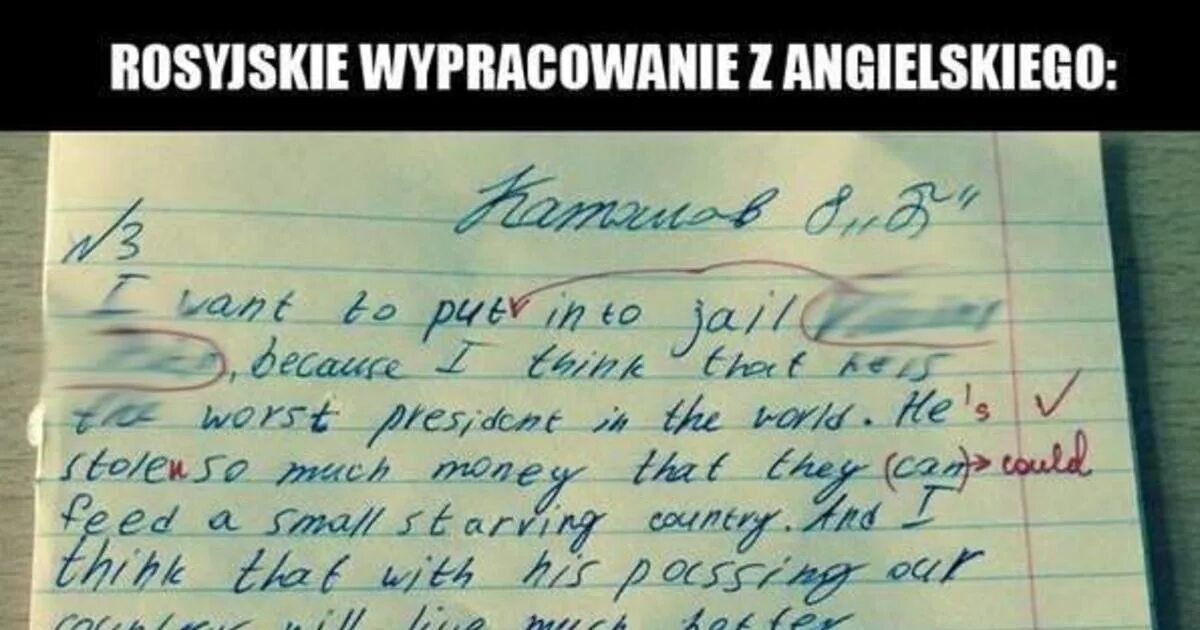 ROSYJSKIE WYPRACOWANIE Z ANGIELSKIEGO:
8 „Б"
№3
I want to put into jail
, because I think that he is
the worst president in the world. He's
stolen so much money that they (can) → could
feed a small starving country. And I
think that with his passing our
country will live much better